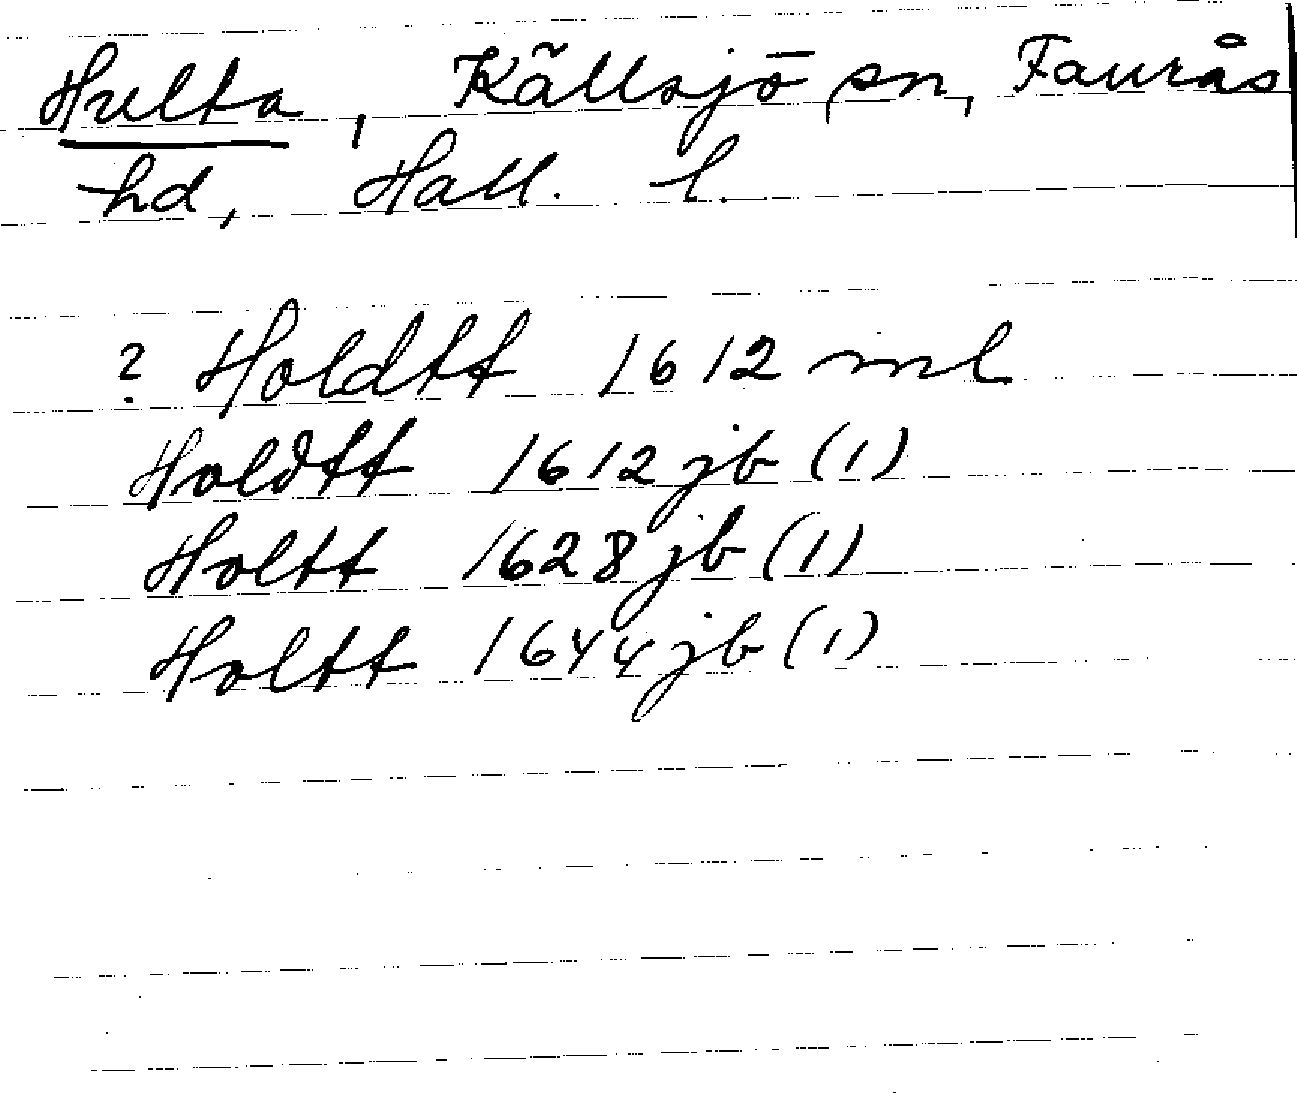 Hulta, Källsjö sn, Faurås
hd, Hall. l.
? Holdtt 1612 ml
Holdtt 1612 jb (1)
Holtt 1628 jb (1)
Holtt 1644 jb (1)